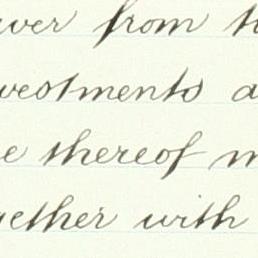 from
vestments a
e thereof m
gether with